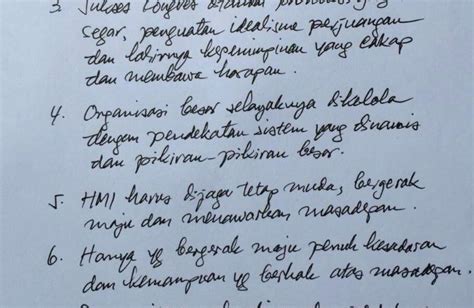 3. Sukses Kongres
segar, penguatan idealisme perjuangan
dan lahirnya kepemimpinan yang cakap
dan membawa harapan.
4. Organisasi besar selayaknya dikelola
dengan pendekatan sistem yang dinamis
dan pikiran-pikiran besar.
5. HMI harus dijaga tetap muda, bergerak
maju dan menawarkan masadepan.
6. Hanya yg bergerak maju penuh kesadaran
dan kemampuan yg berhak atas masadepan.